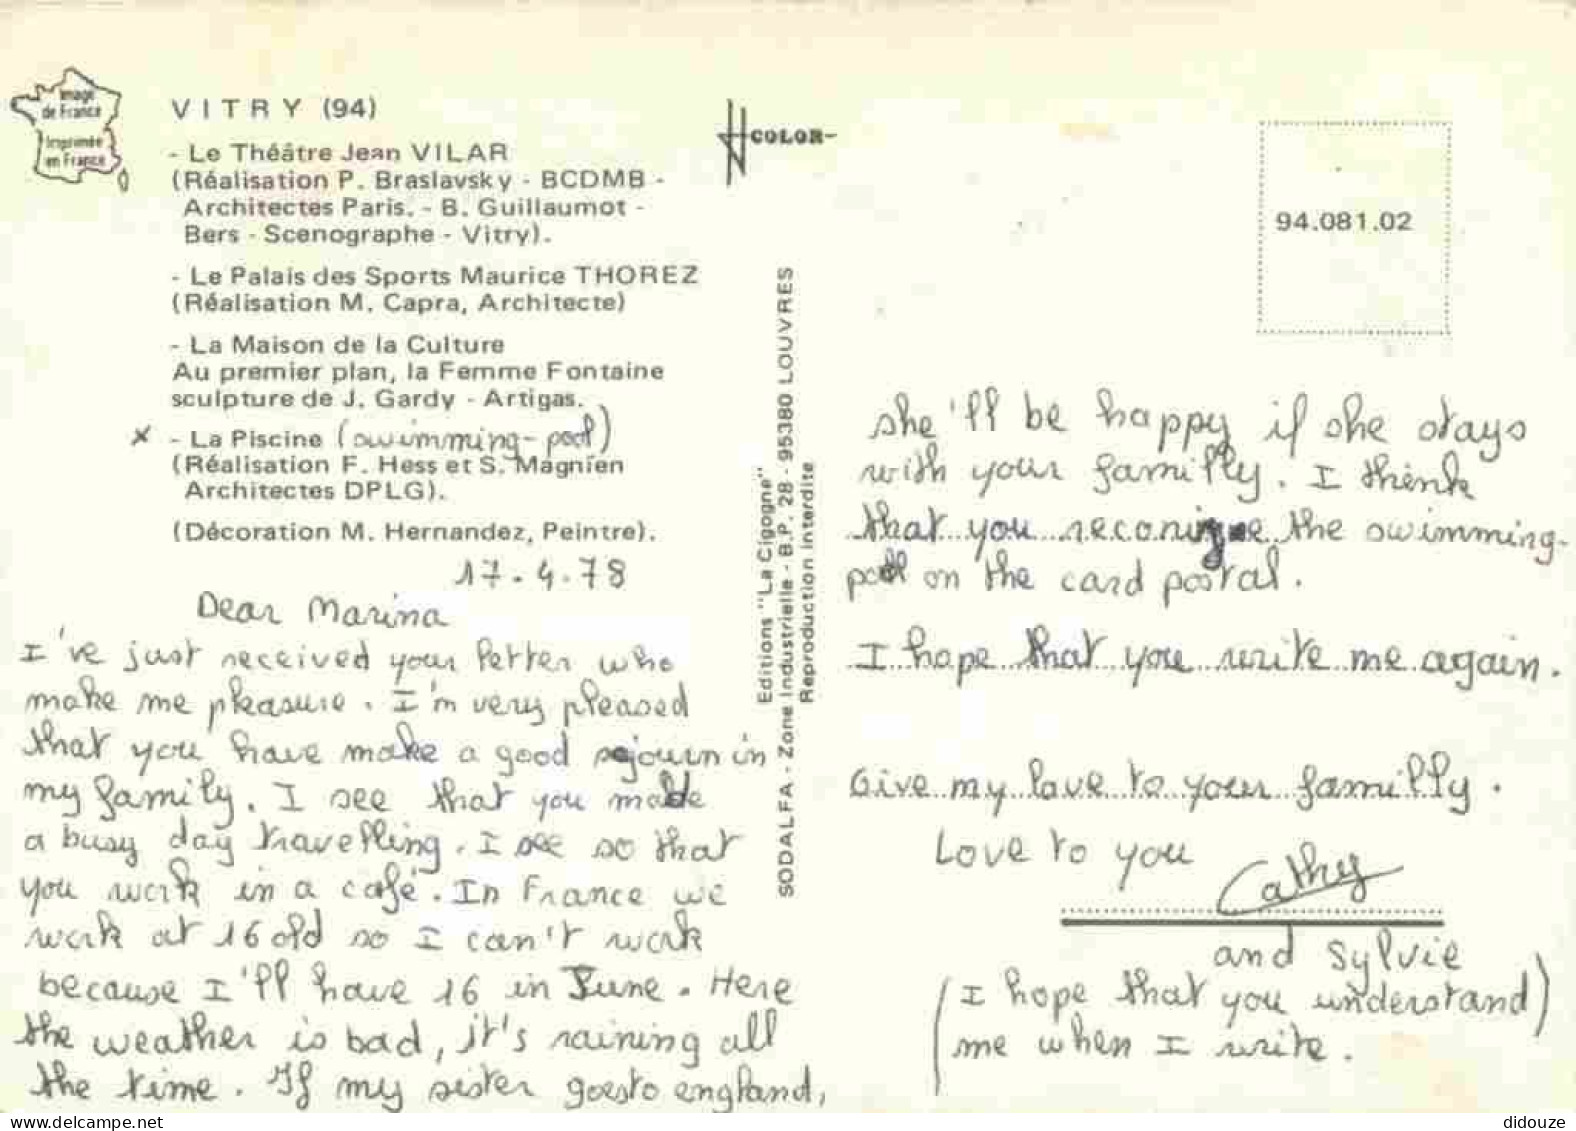 Image
de France
Imprimée
en France
VITRY (94)
- Le Théâtre Jean VILAR
(Réalisation P. Braslavsky - BCDMB -
Architectes Paris. - B. Guillaumot -
Bers - Scenographe - Vitry).
- Le Palais des Sports Maurice THOREZ
(Réalisation M. Capra, Architecte)
- La Maison de la Culture
Au premier plan, la Femme Fontaine
sculpture de J. Gardy - Artigas.
x - La Piscine (swimming-pool)
(Réalisation F. Hess et S. Magnien
Architectes DPLG).
(Décoration M. Hernandez, Peintre).
17.4.78
Dear Marina
I've just received your letter who
make me pleasure. I'm very pleased
that you have make a good sejourn in
my family. I see that you made
a busy day travelling. I see so that
you work in a café. In France we
work at 16 old so I can't work
because I'll have 16 in June. Here
the weather is bad, it's raining all
the time. If my sister goes to england,
COLOR-
Editions "La Cigogne"
SODALFA - Zone Industrielle - B.P. 28 - 95380 LOUVRES
Reproduction interdite
94.081.02
she'll be happy if she stays
with your familly. I think
that you reconigne the swimming-
pool on the card postal.
I hope that you write me again.
Give my love to your familly.
Love to you
Cathy
and Sylvie
(I hope that you understand)
me when I write.
didouze